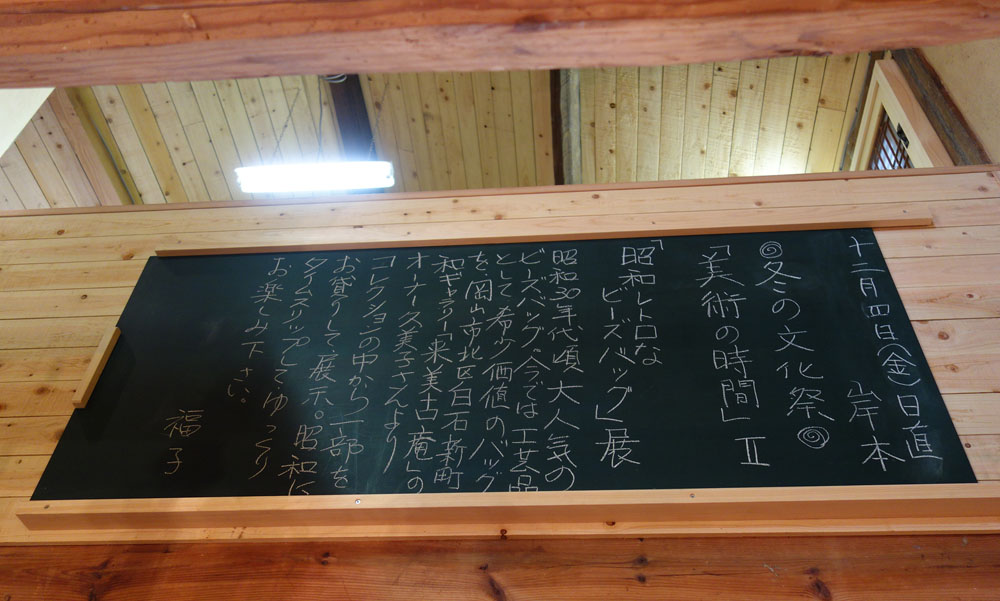 十二月四日(金)日直
岸本
◎冬の文化祭◎
「美術の時間」Ⅱ
「昭和レトロな
ビーズバッグ」展
昭和30年代頃大人気の
ビーズバッグ、今では工芸品
として希少価値のバッグ
を、岡山市北区白石新町
和ギャラリー「来美古庵」の
オーナー久美子さんより
コレクションの中から一部を
お貸りして展示。昭和に
タイムスリップしてゆっくり
お楽しみ下さい。
福子